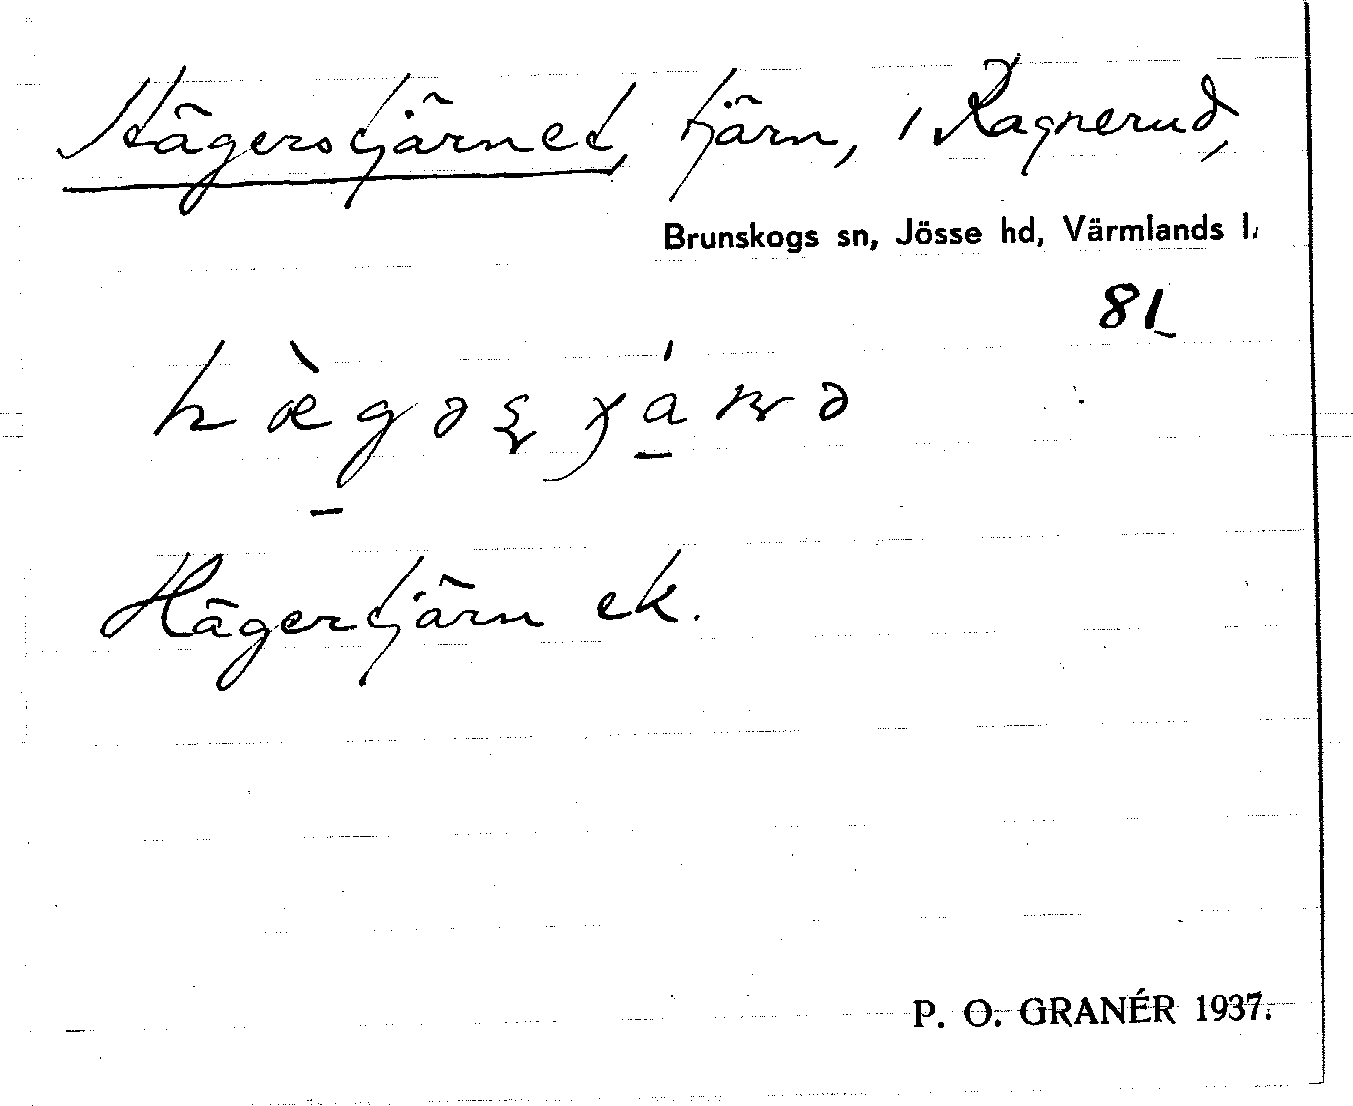 Hägerstjärnet, tjärn, i Ragnerud,
Brunskogs sn, Jösse hd, Värmlands l.
81
Hägertjärn ek.
P. O. GRANÉR 1937.